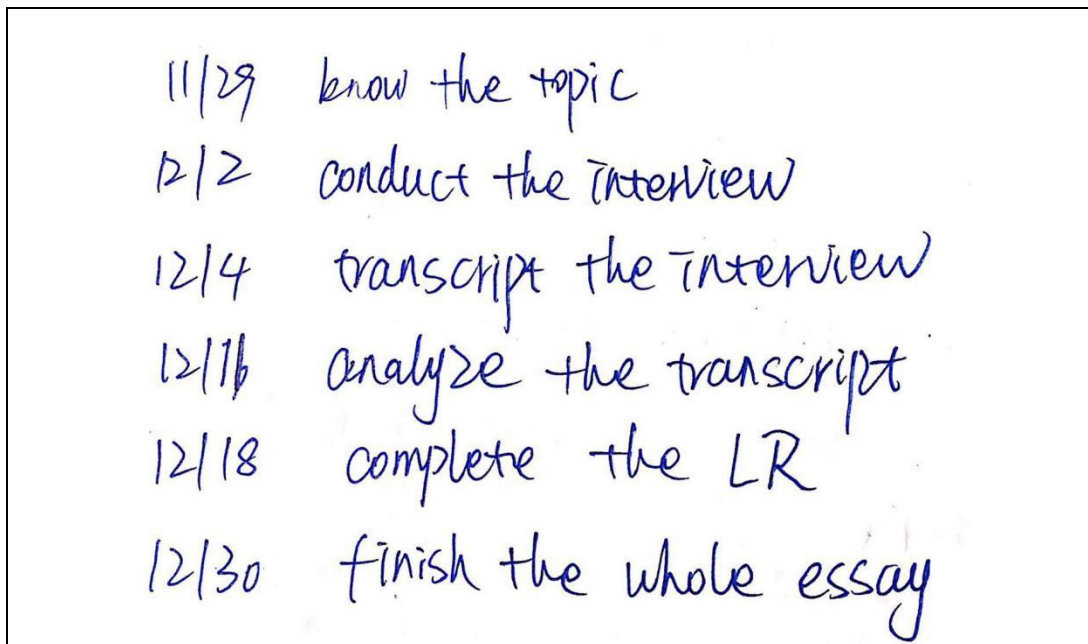 11/29 know the topic
12/2 conduct the interview
12/4 transcript the interview
12/16 analyze the transcript
12/18 complete the LR
12/30 finish the whole essay